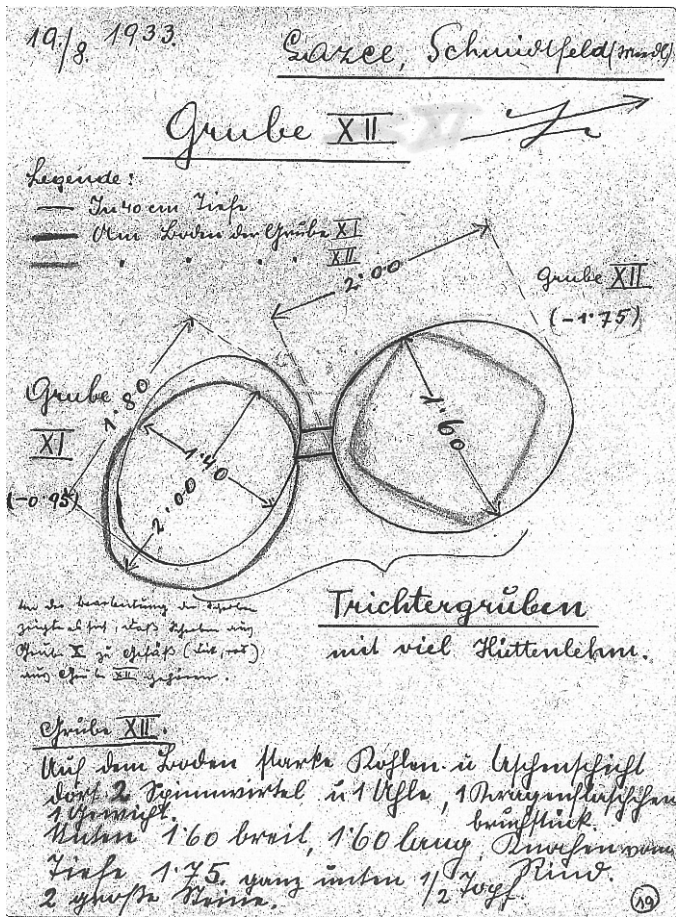 19./8. 1933.
Schmidtfeld
Grube XII XI
Legende:
In 40 cm Tiefe
Am Boden der Grube XI
" " " " XII
2·00
Grube XII
(-1·75)
1·80
Grube
XI
(-0·95)
1·40
2·00
1·60
Bei der Bearbeitung der Scherben
zeigte es sich, daß Scherben aus
Grube X zu Gefäß
aus Grube XII gehören.
Trichtergruben
mit viel Hüttenlehm.
Grube XII.
Auf dem Boden starke Kohlen- u Aschenschicht
dort 2 Spinnwirtel u 1 Ahle, 1 Kragenfläschchen
1 Gewicht. bruchstück.
Unten 1·60 breit, 1·60 lang, Knochen vom
Tiefe 1·75. ganz unten 1/2 Topf Rind.
2 große Steine.
19